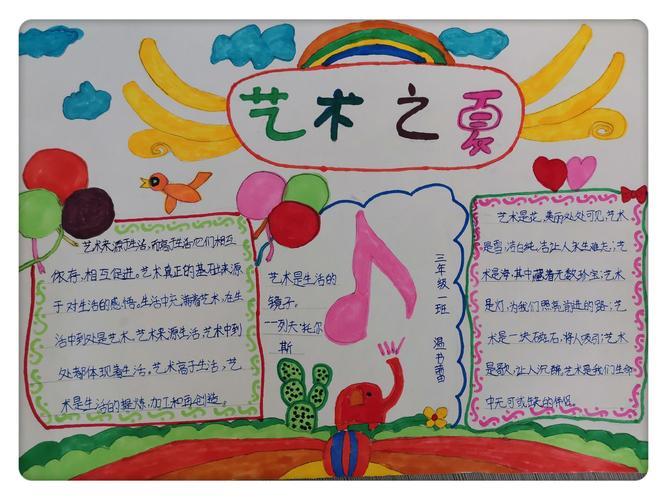 艺术之夏
艺术来源于生活,而高于生活它们相互
依存,相互促进。艺术真正的基础来源
于对生活的感悟。生活中充满着艺术,在生
活中到处是艺术。艺术来源生活,艺术中到
处都体现着生活。艺术高于生活,艺
术是生活的提炼、加工和再创造。
艺术是生活的
镜子。
——列夫·托尔
斯
三年级一班
艺术是花,美丽处处可见;艺术
是雪,洁白纯洁让人永生难忘;艺
术是海,其中藏着无数珍宝;艺术
是灯,为我们照亮前进的路;艺
术是一块磁石,将人吸引;艺术
是歌,让人沉醉,艺术是我们生命
中无可或缺的伴侣。